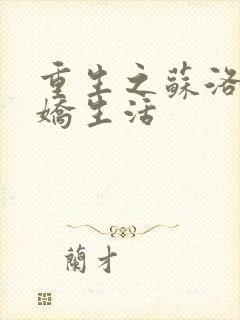 重生之蘇洛
嬌生活
蘭才